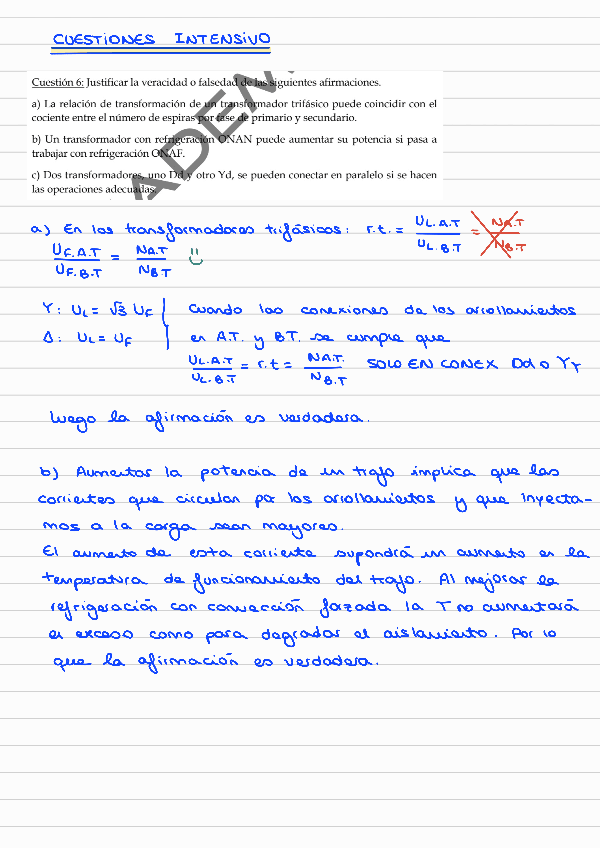 CUESTIONES INTENSIVO
Cuestión 6: Justificar la veracidad o falsedad de las siguientes afirmaciones.
a) La relación de transformación de un transformador trifásico puede coincidir con el
cociente entre el número de espiras por fase de primario y secundario.
b) Un transformador con refrigeración ONAN puede aumentar su potencia si pasa a
trabajar con refrigeración ONAF.
c) Dos transformadores, uno Dd y otro Yd, se pueden conectar en paralelo si se hacen
las operaciones adecuadas.
ADEM
a) En los transformadores trifásicos: r.t. = U_L.A.T / U_L.B.T = N_A.T / N_B.T
U_F.A.T / U_F.B.T = N_A.T / N_B.T
Y: U_L = √3 U_F | Cuando las conexiones de los arrollamientos
Δ: U_L = U_F | en A.T. y B.T. se cumple que
U_L.A.T / U_L.B.T = r.t = N_A.T. / N_B.T SOLO EN CONEX Dd o Yy
Luego la afirmación es verdadera.
b) Aumentar la potencia de un trafo implica que las
corrientes que circulan por los arrollamientos y que inyecta-
mos a la carga sean mayores.
El aumento de esta corriente supondrá un aumento en la
temperatura de funcionamiento del trafo. Al mejorar la
refrigeración con convección forzada la T no aumentará
en exceso como para degradar el aislamiento. Por lo
que la afirmación es verdadera.